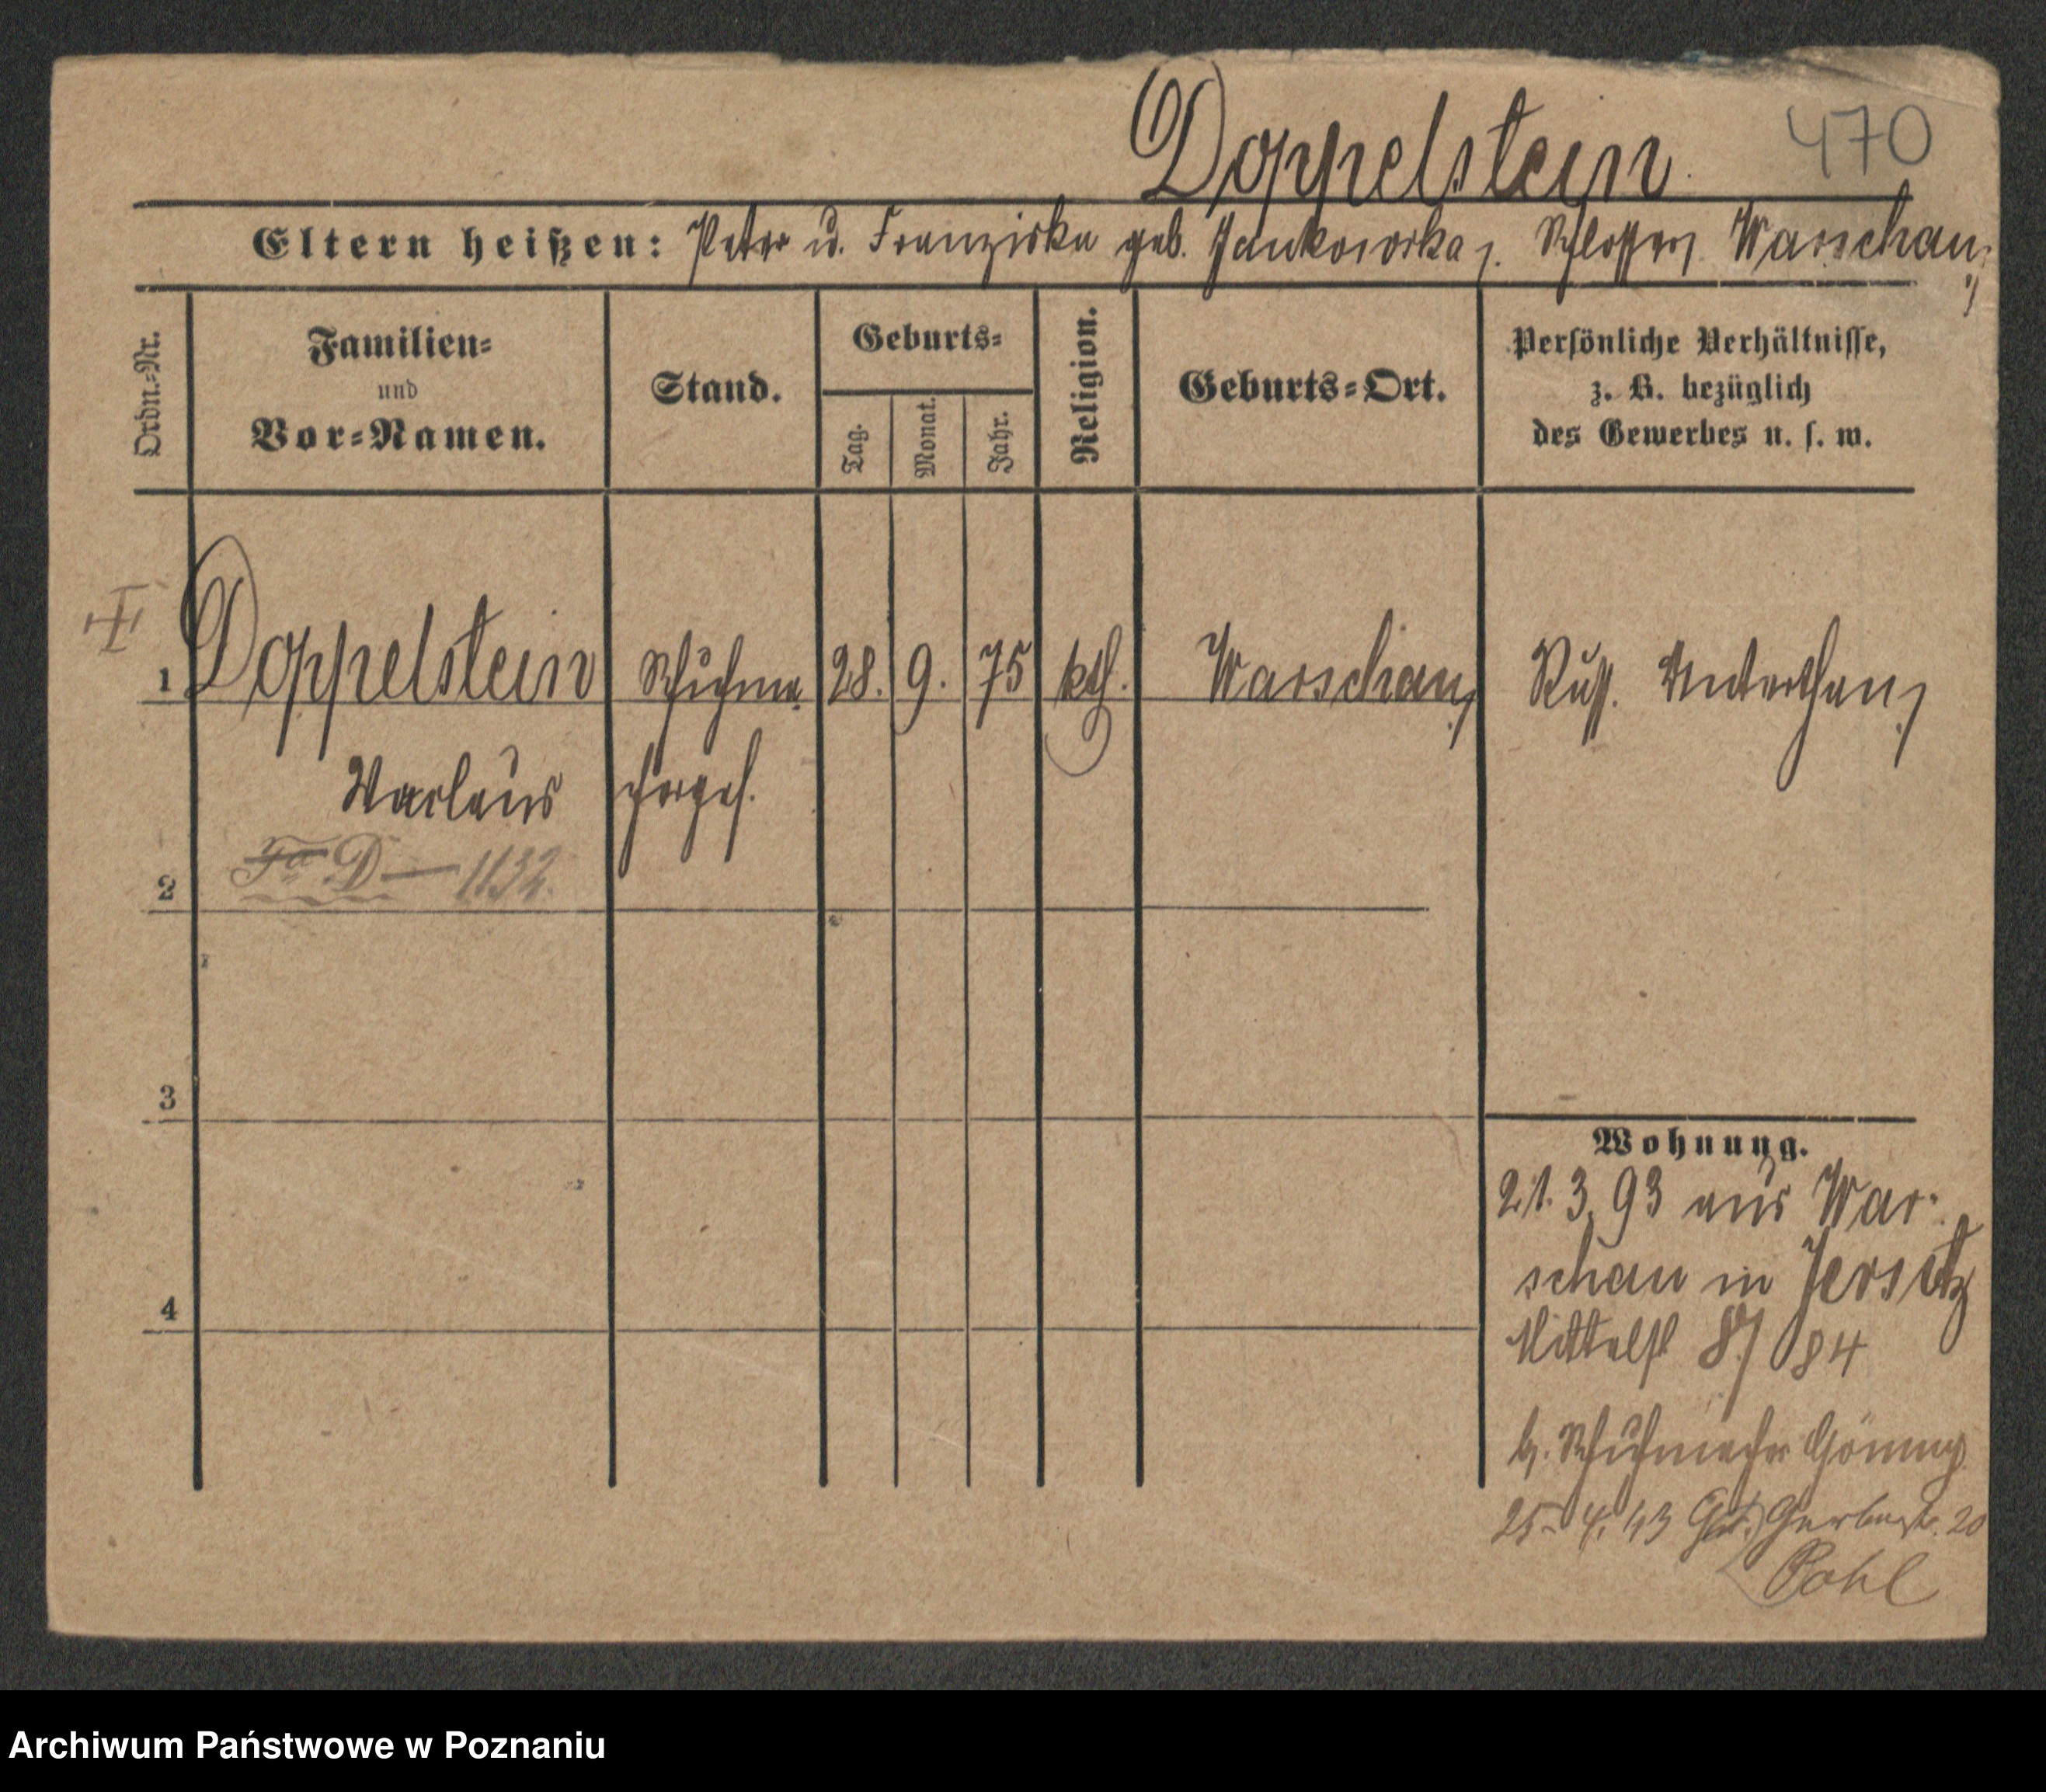 Doppelstein
470
Eltern heißen: Peter u. Franziska geb. Jankowska, Schlosser, Warschau,
Ordn.-Nr.
Familien-
und
Vor-Namen.
Stand.
Geburts-
Tag.
Monat.
Jahr.
Religion.
Geburts-Ort.
Persönliche Verhältnisse,
z. B. bezüglich
des Gewerbes u. s. w.
1 Doppelstein Schuhma 28. 9. 75 kth. Warschau, Russ. Unterthan,
cherges.
Fa D — 1132.
2
3
4
Wohnung.
21. 3. 93 aus War-
schau in Jersitz
Mittelst 84
b. Schuhmacher
25. 4. 93 Gerberstr. 20
Pohl
Archiwum Państwowe w Poznaniu